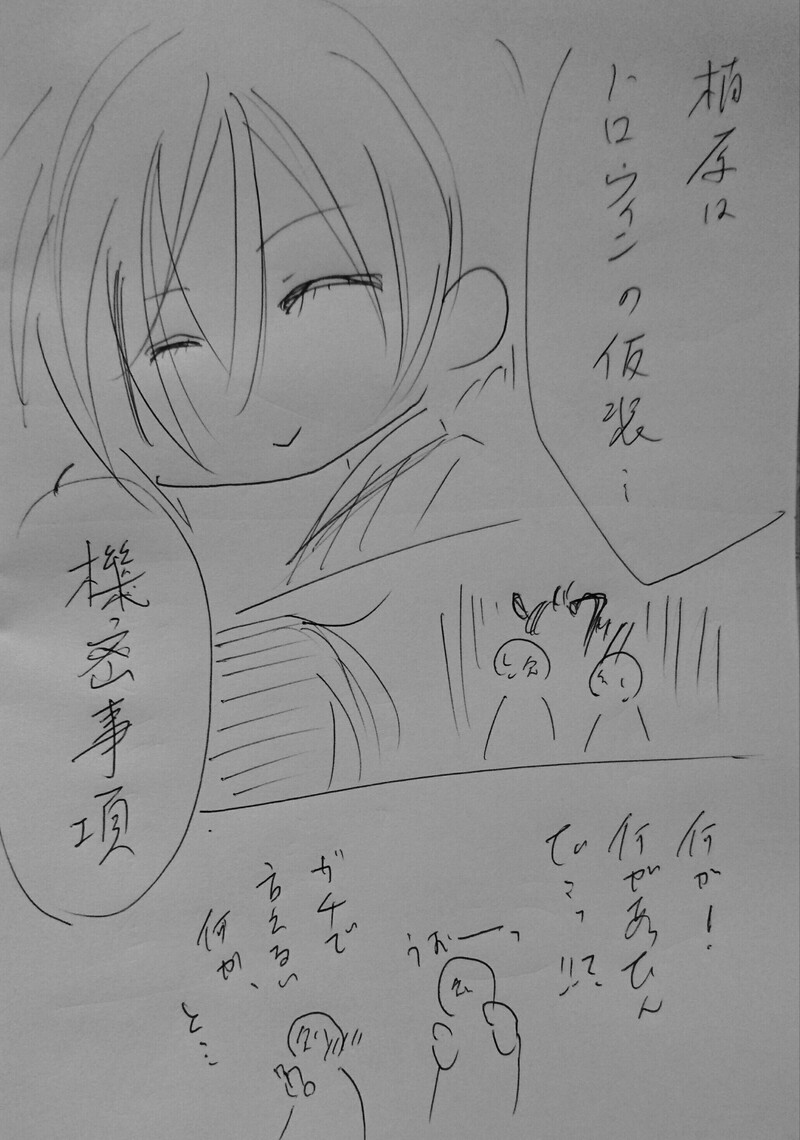 柏原は
ハロウィンの仮装…
機密事項
何が！
何があったん
うおーっ
ガチで
言えない
何か、
と…